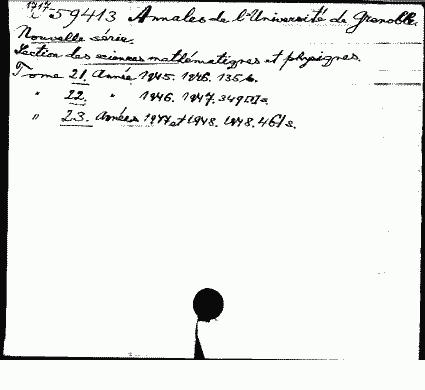 1717 59413 Annales de l'Université de Grenoble.
Nouvelle série.
Section des sciences mathématiques et physiques.
Tome 21. Année 1945. 1946. 135 s.
" 22. " 1946. 1947. 349 s.
" 23. Années 1947 et 1948. 1948. 461 s.